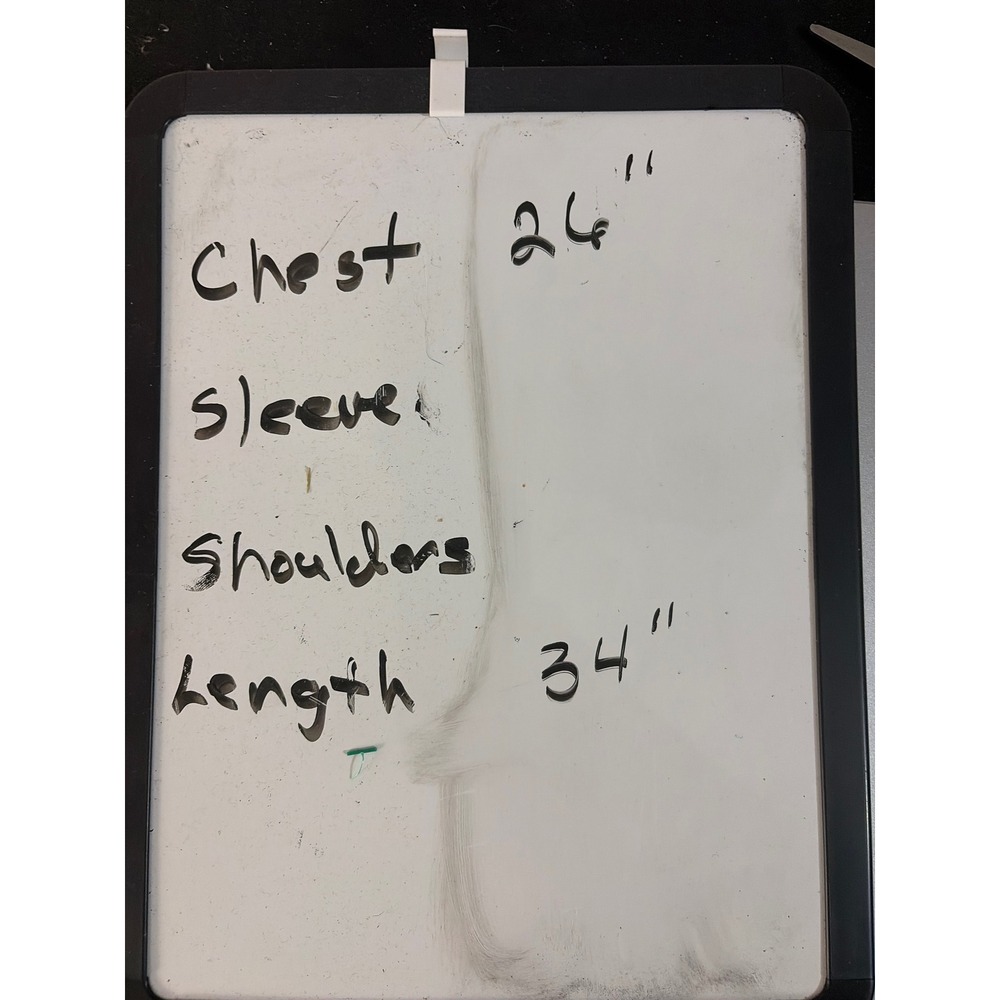 Chest 26"
Sleeve
Shoulders
Length 34"